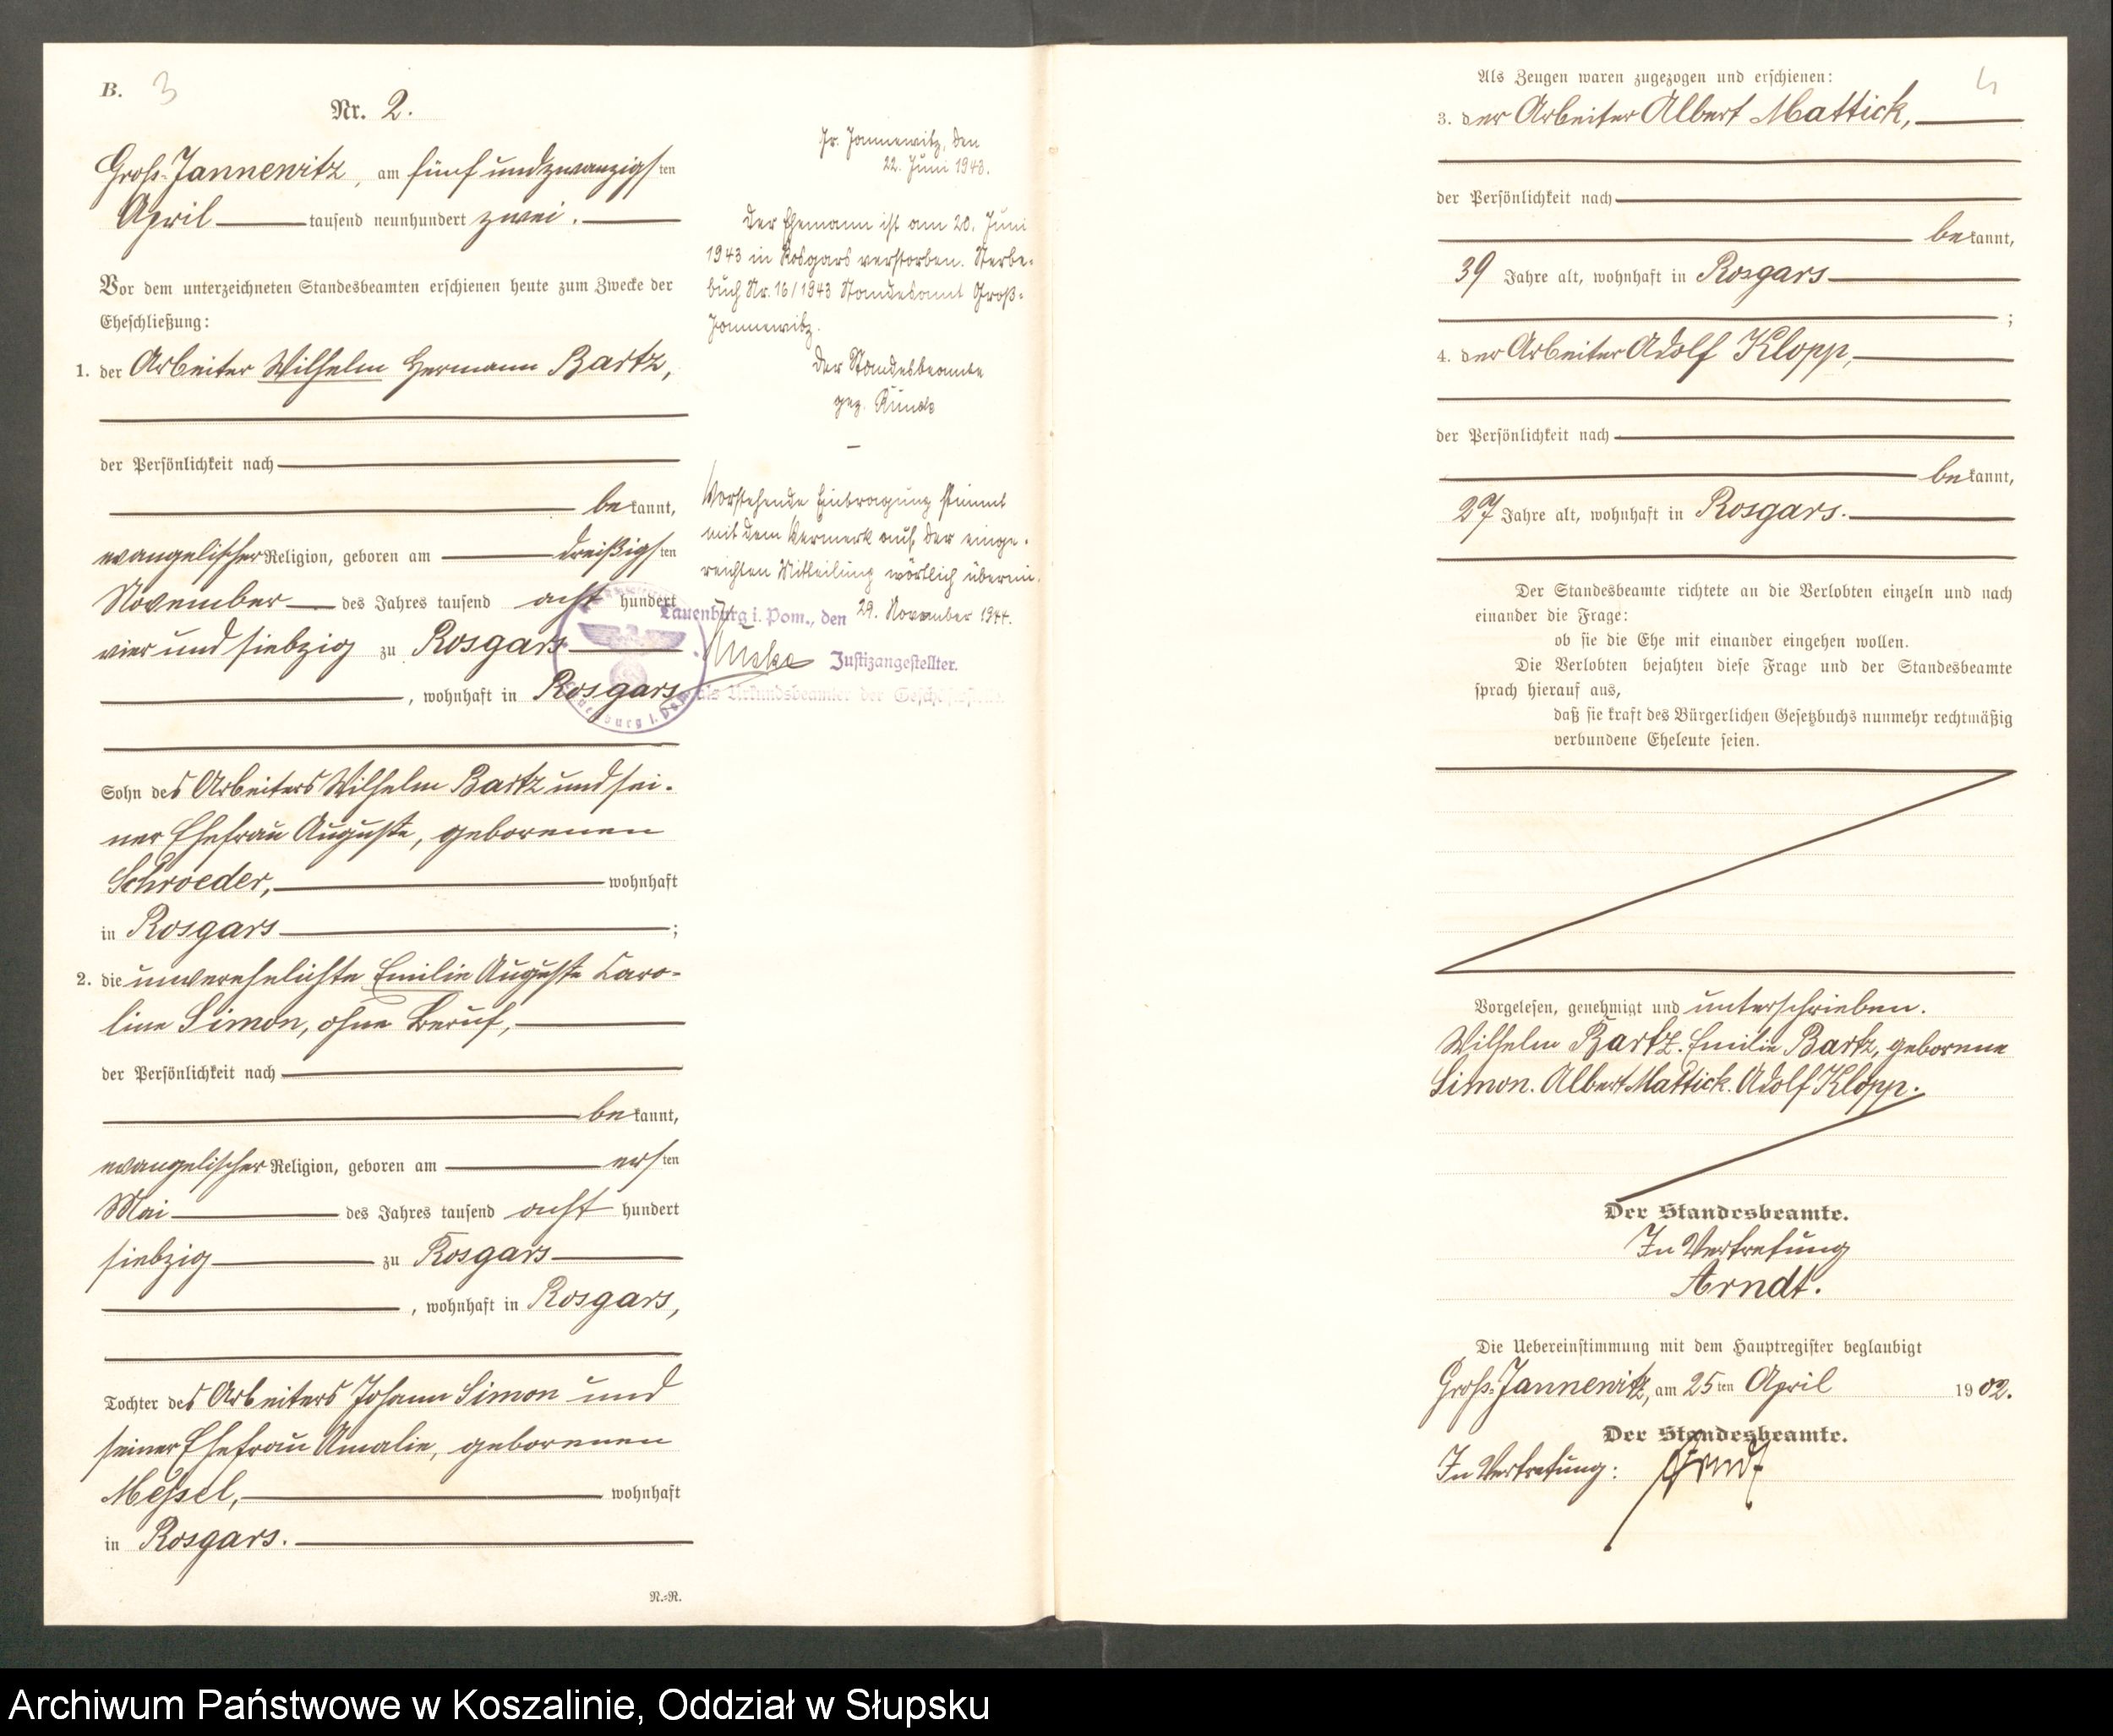 B. 3
Nr. 2.
Groß-Jannewitz, am fünf und zwanzigsten
April tausend neunhundert zwei.
Vor dem unterzeichneten Standesbeamten erschienen heute zum Zwecke der
Eheschließung:
1. der Arbeiter Wilhelm Hermann Bartz,
der Persönlichkeit nach
bekannt,
evangelischer Religion, geboren am dreißigsten
November des Jahres tausend acht hundert
vier und siebzig zu Rosgars
, wohnhaft in Rosgars
Sohn des Arbeiters Wilhelm Bartz und sei-
ner Ehefrau Auguste, geborenen
Schroeder, wohnhaft
in Rosgars ;
2. die unverehelichte Emilie Auguste Caro-
line Simon, ohne Beruf,
der Persönlichkeit nach
bekannt,
evangelischer Religion, geboren am ersten
Mai des Jahres tausend acht hundert
siebzig zu Rosgars
, wohnhaft in Rosgars,
Tochter des Arbeiters Johann Simon und
seiner Ehefrau Amalie, geborenen
Meßsel, wohnhaft
in Rosgars.
N.-R.
Gr. Jannewitz, den
22. Juni 1943.
Der Ehemann ist am 20. Juni
1943 in Rosgars verstorben. Sterbe-
buch Nr. 16/1943 Standesamt Groß-
Jannewitz.
Der Standesbeamte
gez.
Vorstehende Eintragung stimmt
mit dem Vermerk auf der einge-
reichten Mitteilung wörtlich überein.
Lauenburg i. Pom., den 29. November 1944.
Justizangestellter.
als Urkundsbeamter der Geschäftsstelle.
4
Als Zeugen waren zugezogen und erschienen:
3. der Arbeiter Albert Mattick,
der Persönlichkeit nach
bekannt,
39 Jahre alt, wohnhaft in Rosgars
;
4. der Arbeiter Adolf Klopp,
der Persönlichkeit nach
bekannt,
27 Jahre alt, wohnhaft in Rosgars.
Der Standesbeamte richtete an die Verlobten einzeln und nach
einander die Frage:
ob sie die Ehe mit einander eingehen wollen.
Die Verlobten bejahten diese Frage und der Standesbeamte
sprach hierauf aus,
daß sie kraft des Bürgerlichen Gesetzbuchs nunmehr rechtmäßig
verbundene Eheleute seien.
Vorgelesen, genehmigt und unterschrieben.
Wilhelm Bartz. Emilie Bartz, geborene
Simon. Albert Mattick. Adolf Klopp.
Der Standesbeamte.
In Vertretung
Arndt.
Die Uebereinstimmung mit dem Hauptregister beglaubigt
Groß-Jannewitz, am 25ten April 1902.
Der Standesbeamte.
In Vertretung: Arndt
Archiwum Państwowe w Koszalinie, Oddział w Słupsku